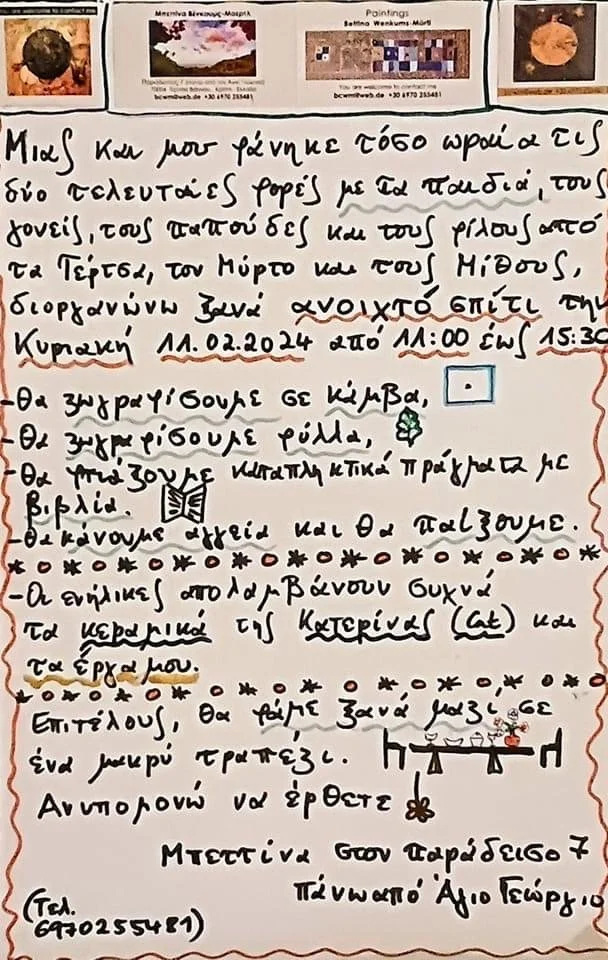 you are welcome to contact me
Μπεττίνα Βένκουμς-Μαερτλ
70014
bcwm@web.de +30 6970 255481
Paintings
Bettina Wenkums-Märtl
You are welcome to contact me
bcwm@web.de +30 6970 255481
Μιας και μου φάνηκε τόσο ωραία τις
δύο τελευταίες φορές με τα παιδιά, τους
γονείς, τους παπούδες και τους φίλους από
τα Τέρτσα, τον Μύρτο και τους Μίθους,
διοργανώνω ξανά ανοιχτό σπίτι την
Κυριακή 11.02.2024 από 11:00 έως 15:30
-Θα ζωγραφίσουμε σε κάμβα,
-Θα ζωγραφίσουμε φύλλα,
-Θα φτιάξουμε καταπληκτικά πράγματα με
βιβλία.
-Θα κάνουμε αγγεία και θα παίξουμε.
-Οι ενήλικες απολαμβάνουν συχνά
τα κεραμικά της Κατερίνας (Cat) και
τα έργα μου.
Επιτέλους, θα φάμε ξανά μαζί σε
ένα μακρύ τραπέζι.
Ανυπομονώ να έρθετε
Μπεττίνα στον παράδεισο 7
πάνω από Άγιο Γεώργιο
(Τελ.
6970255481)